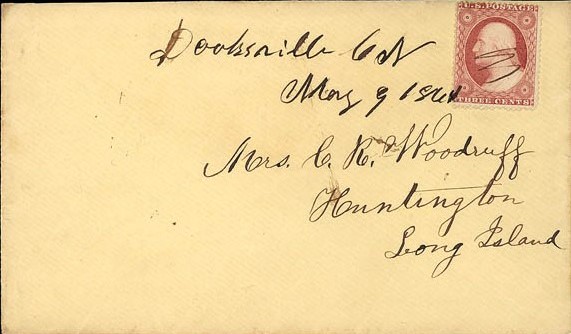 U.S. POSTAGE
THREE CENTS
May 9 1861
Mrs. C. R. Woodruff
Huntington
Long Island